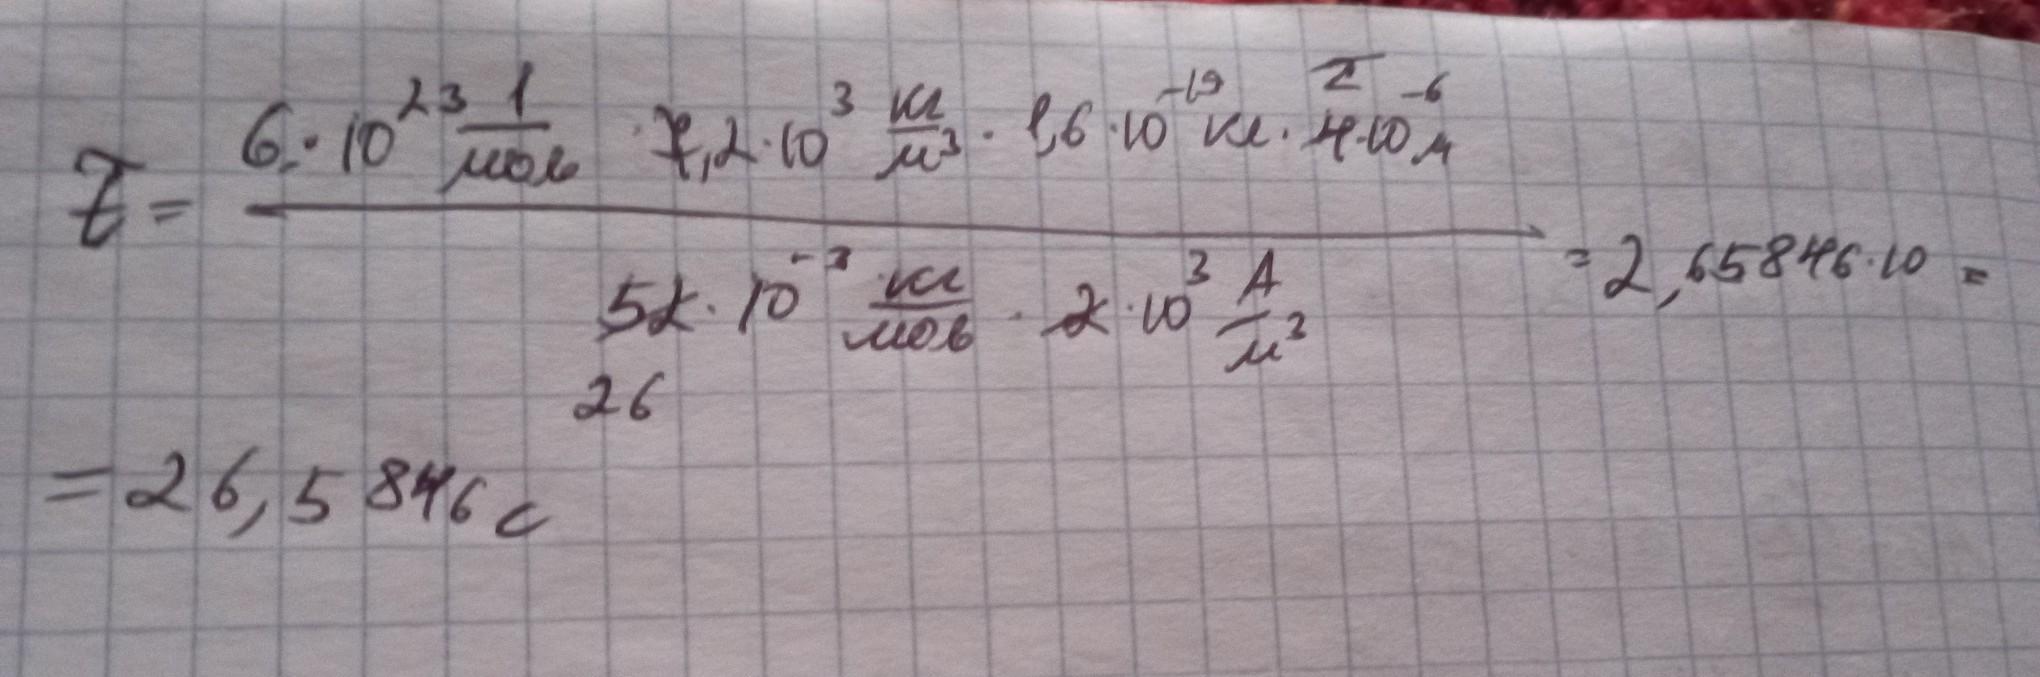 τ = (6 · 10²³ 1/моль · 7,2 · 10³ кг/м³ · 1,6 · 10⁻¹⁹ Кл · 4 · 10⁻⁶ м) / (52 · 10⁻³ кг/моль · 2 · 10³ А/м²) = 2,65846 · 10 =
2
26
= 26,5846 с